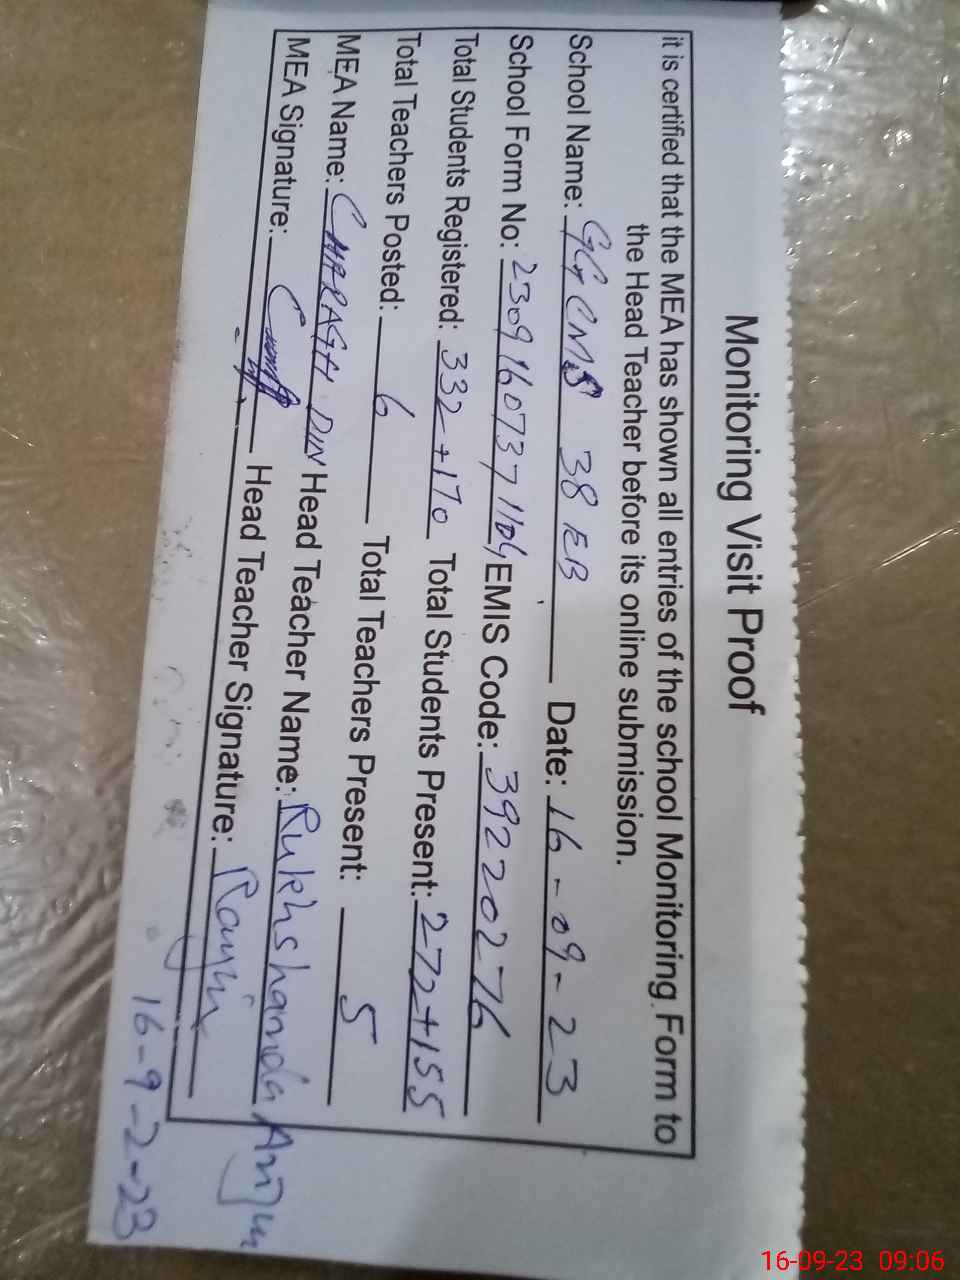 Monitoring Visit Proof
it is certified that the MEA has shown all entries of the school Monitoring Form to
the Head Teacher before its online submission.
School Name: GGCMS 38 EB Date: 16-09-23
School Form No: 2309160737 1104 EMIS Code: 39220276
Total Students Registered: 332+170 Total Students Present: 272+155
Total Teachers Posted: 6 Total Teachers Present: 5
MEA Name: CHARAGH DIN Head Teacher Name: Rukhshanda Anjum
MEA Signature: Head Teacher Signature:
16-9-2-23
16-09-23 09:06